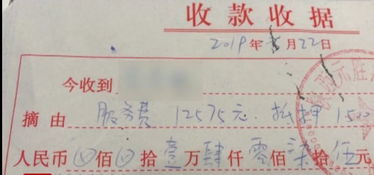 收款收据
2019年 月22日
今收到
摘由 服务费 12575元. 抵押 1500
人民币 佰 拾壹万肆仟零佰柒拾伍元